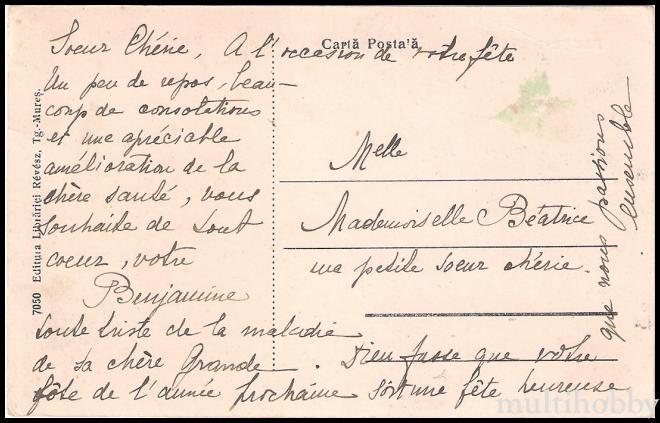 Carta Posta'ă
Soeur Chérie, A l'occasion de votre fête
Un peu de repos, beau-
coup de consolations
et une apréciable
amélioration de la
chère santé, vous
souhaite de tout
coeur, votre
Benjamine
toute triste de la maladie
de sa chère Grande. Dieu fasse que votre
fête de l'année prochaine soit une fête heureuse
que nous passions
ensemble
Melle
Mademoiselle Béatrice
ma petite soeur chérie.
7050 Editura Librăriei Révész, Tg.-Mureș.
multihobby